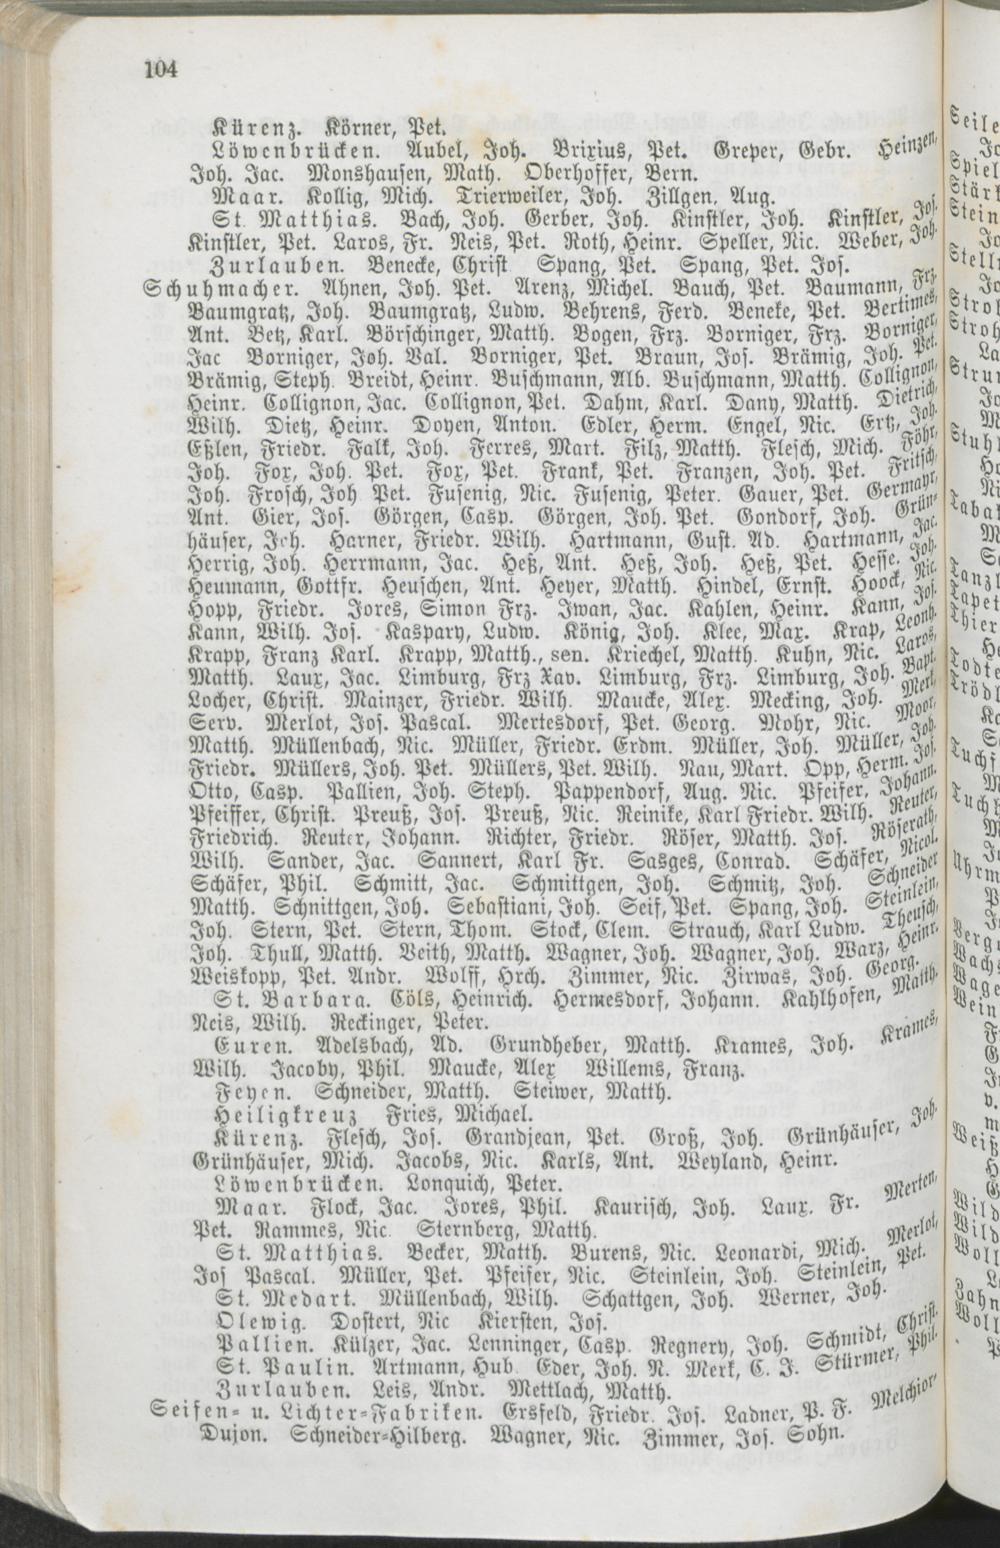 104
Kürenz. Körner, Pet.
Löwenbrücken. Aubel, Joh. Brixius, Pet. Greper, Gebr. Heinzen,
Joh. Jac. Monshausen, Math. Oberhoffer, Bern.
Maar. Kollig, Mich. Trierweiler, Joh. Zillgen, Aug.
St. Matthias. Bach, Joh. Gerber, Joh. Kinstler, Joh. Kinstler, Jos.
Kinstler, Pet. Laros, Fr. Neis, Pet. Roth, Heinr. Speller, Nic. Weber, Joh.
Zurlauben. Benecke, Christ Spang, Pet. Spang, Pet. Jos.
Schuhmacher. Ahnen, Joh. Pet. Arenz, Michel. Bauch, Pet. Baumann, Frz.
Baumgratz, Joh. Baumgratz, Ludw. Behrens, Ferd. Beneke, Pet. Bertimes,
Ant. Betz, Karl. Börschinger, Matth. Bogen, Frz. Borniger, Frz. Borniger,
Jac Borniger, Joh. Val. Borniger, Pet. Braun, Jos. Brämig, Joh. Pet.
Brämig, Steph. Breidt, Heinr. Buschmann, Alb. Buschmann, Matth. Collignon,
Heinr. Collignon, Jac. Collignon, Pet. Dahm, Karl. Dany, Matth. Dietrich,
Wilh. Dietz, Heinr. Doyen, Anton. Edler, Herm. Engel, Nic. Ertz, Joh.
Eßlen, Friedr. Falk, Joh. Ferres, Mart. Filz, Matth. Flesch, Mich. Föhr,
Joh. Fox, Joh. Pet. Fox, Pet. Frank, Pet. Franzen, Joh. Pet. Fritsch,
Joh. Frosch, Joh Pet. Fusenig, Nic. Fusenig, Peter. Gauer, Pet. Germayr,
Ant. Gier, Jos. Görgen, Casp. Görgen, Joh. Pet. Gondorf, Joh. Grün-
häuser, Joh. Harner, Friedr. Wilh. Hartmann, Gust. Ad. Hartmann, Jac.
Herrig, Joh. Herrmann, Jac. Heß, Ant. Heß, Joh. Heß, Pet. Hesse. Joh.
Heumann, Gottfr. Heuschen, Ant. Heyer, Matth. Hindel, Ernst. Hoock, Nic.
Hopp, Friedr. Jores, Simon Frz. Iwan, Jac. Kahlen, Heinr. Kann, Jos.
Kann, Wilh. Jos. Kaspary, Ludw. König, Joh. Klee, Max. Krap, Leonh.
Krapp, Franz Karl. Krapp, Matth., sen. Kriechel, Matth. Kuhn, Nic. Laros,
Matth. Laux, Jac. Limburg, Frz Xav. Limburg, Frz. Limburg, Joh. Bapt.
Locher, Christ. Mainzer, Friedr. Wilh. Maucke, Alex. Mecking, Joh. Merl,
Serv. Merlot, Jos. Pascal. Mertesdorf, Pet. Georg. Mohr, Nic. Moor,
Matth. Müllenbach, Nic. Müller, Friedr. Erdm. Müller, Joh. Müller, Joh.
Friedr. Müllers, Joh. Pet. Müllers, Pet. Wilh. Nau, Mart. Opp, Herm. Jos.
Otto, Casp. Pallien, Joh. Steph. Pappendorf, Aug. Nic. Pfeifer, Johann.
Pfeiffer, Christ. Preuß, Jos. Preuß, Nic. Reinike, Karl Friedr. Wilh. Reuter,
Friedrich. Reuter, Johann. Richter, Friedr. Röser, Matth. Jos. Röserath,
Wilh. Sander, Jac. Sannert, Karl Fr. Sasges, Conrad. Schäfer, Nicol.
Schäfer, Phil. Schmitt, Jac. Schmittgen, Joh. Schmitz, Joh. Schneider
Matth. Schnittgen, Joh. Sebastiani, Joh. Seif, Pet. Spang, Joh. Steinlein,
Joh. Stern, Pet. Stern, Thom. Stock, Clem. Strauch, Karl Ludw. Theusch,
Joh. Thull, Matth. Veith, Matth. Wagner, Joh. Wagner, Joh. Warz, Heinr.
Weiskopp, Pet. Andr. Wolff, Hrch. Zimmer, Nic. Zirwas, Joh. Georg.
St. Barbara. Cöls, Heinrich. Hermesdorf, Johann. Kahlhofen, Matth.
Neis, Wilh. Reckinger, Peter.
Euren. Adelsbach, Ad. Grundheber, Matth. Krames, Joh. Krames,
Wilh. Jacoby, Phil. Maucke, Alex Willems, Franz.
Feyen. Schneider, Matth. Steiwer, Matth.
Heiligkreuz Fries, Michael.
Kürenz. Flesch, Jos. Grandjean, Pet. Groß, Joh. Grünhäuser, Joh.
Grünhäuser, Mich. Jacobs, Nic. Karls, Ant. Weyland, Heinr.
Löwenbrücken. Lonquich, Peter.
Maar. Flock, Jac. Jores, Phil. Kaurisch, Joh. Laux. Fr. Merten,
Pet. Rammes, Nic. Sternberg, Matth.
St. Matthias. Becker, Matth. Burens, Nic. Leonardi, Mich. Merlot,
Jos Pascal. Müller, Pet. Pfeifer, Nic. Steinlein, Joh. Steinlein, Pet.
St. Medart. Müllenbach, Wilh. Schattgen, Joh. Werner, Joh.
Olewig. Dostert, Nic Kiersten, Jos.
Pallien. Külzer, Jac. Lenninger, Casp. Regnery, Joh. Schmidt, Christ.
St. Paulin. Artmann, Hub. Eder, Joh. N. Merk, C. J. Stürmer, Phil.
Zurlauben. Leis, Andr. Mettlach, Matth.
Seifen- u. Lichter-Fabriken. Ersfeld, Friedr. Jos. Ladner, P. F. Melchior-
Dujon. Schneider-Hilberg. Wagner, Nic. Zimmer, Jos. Sohn.